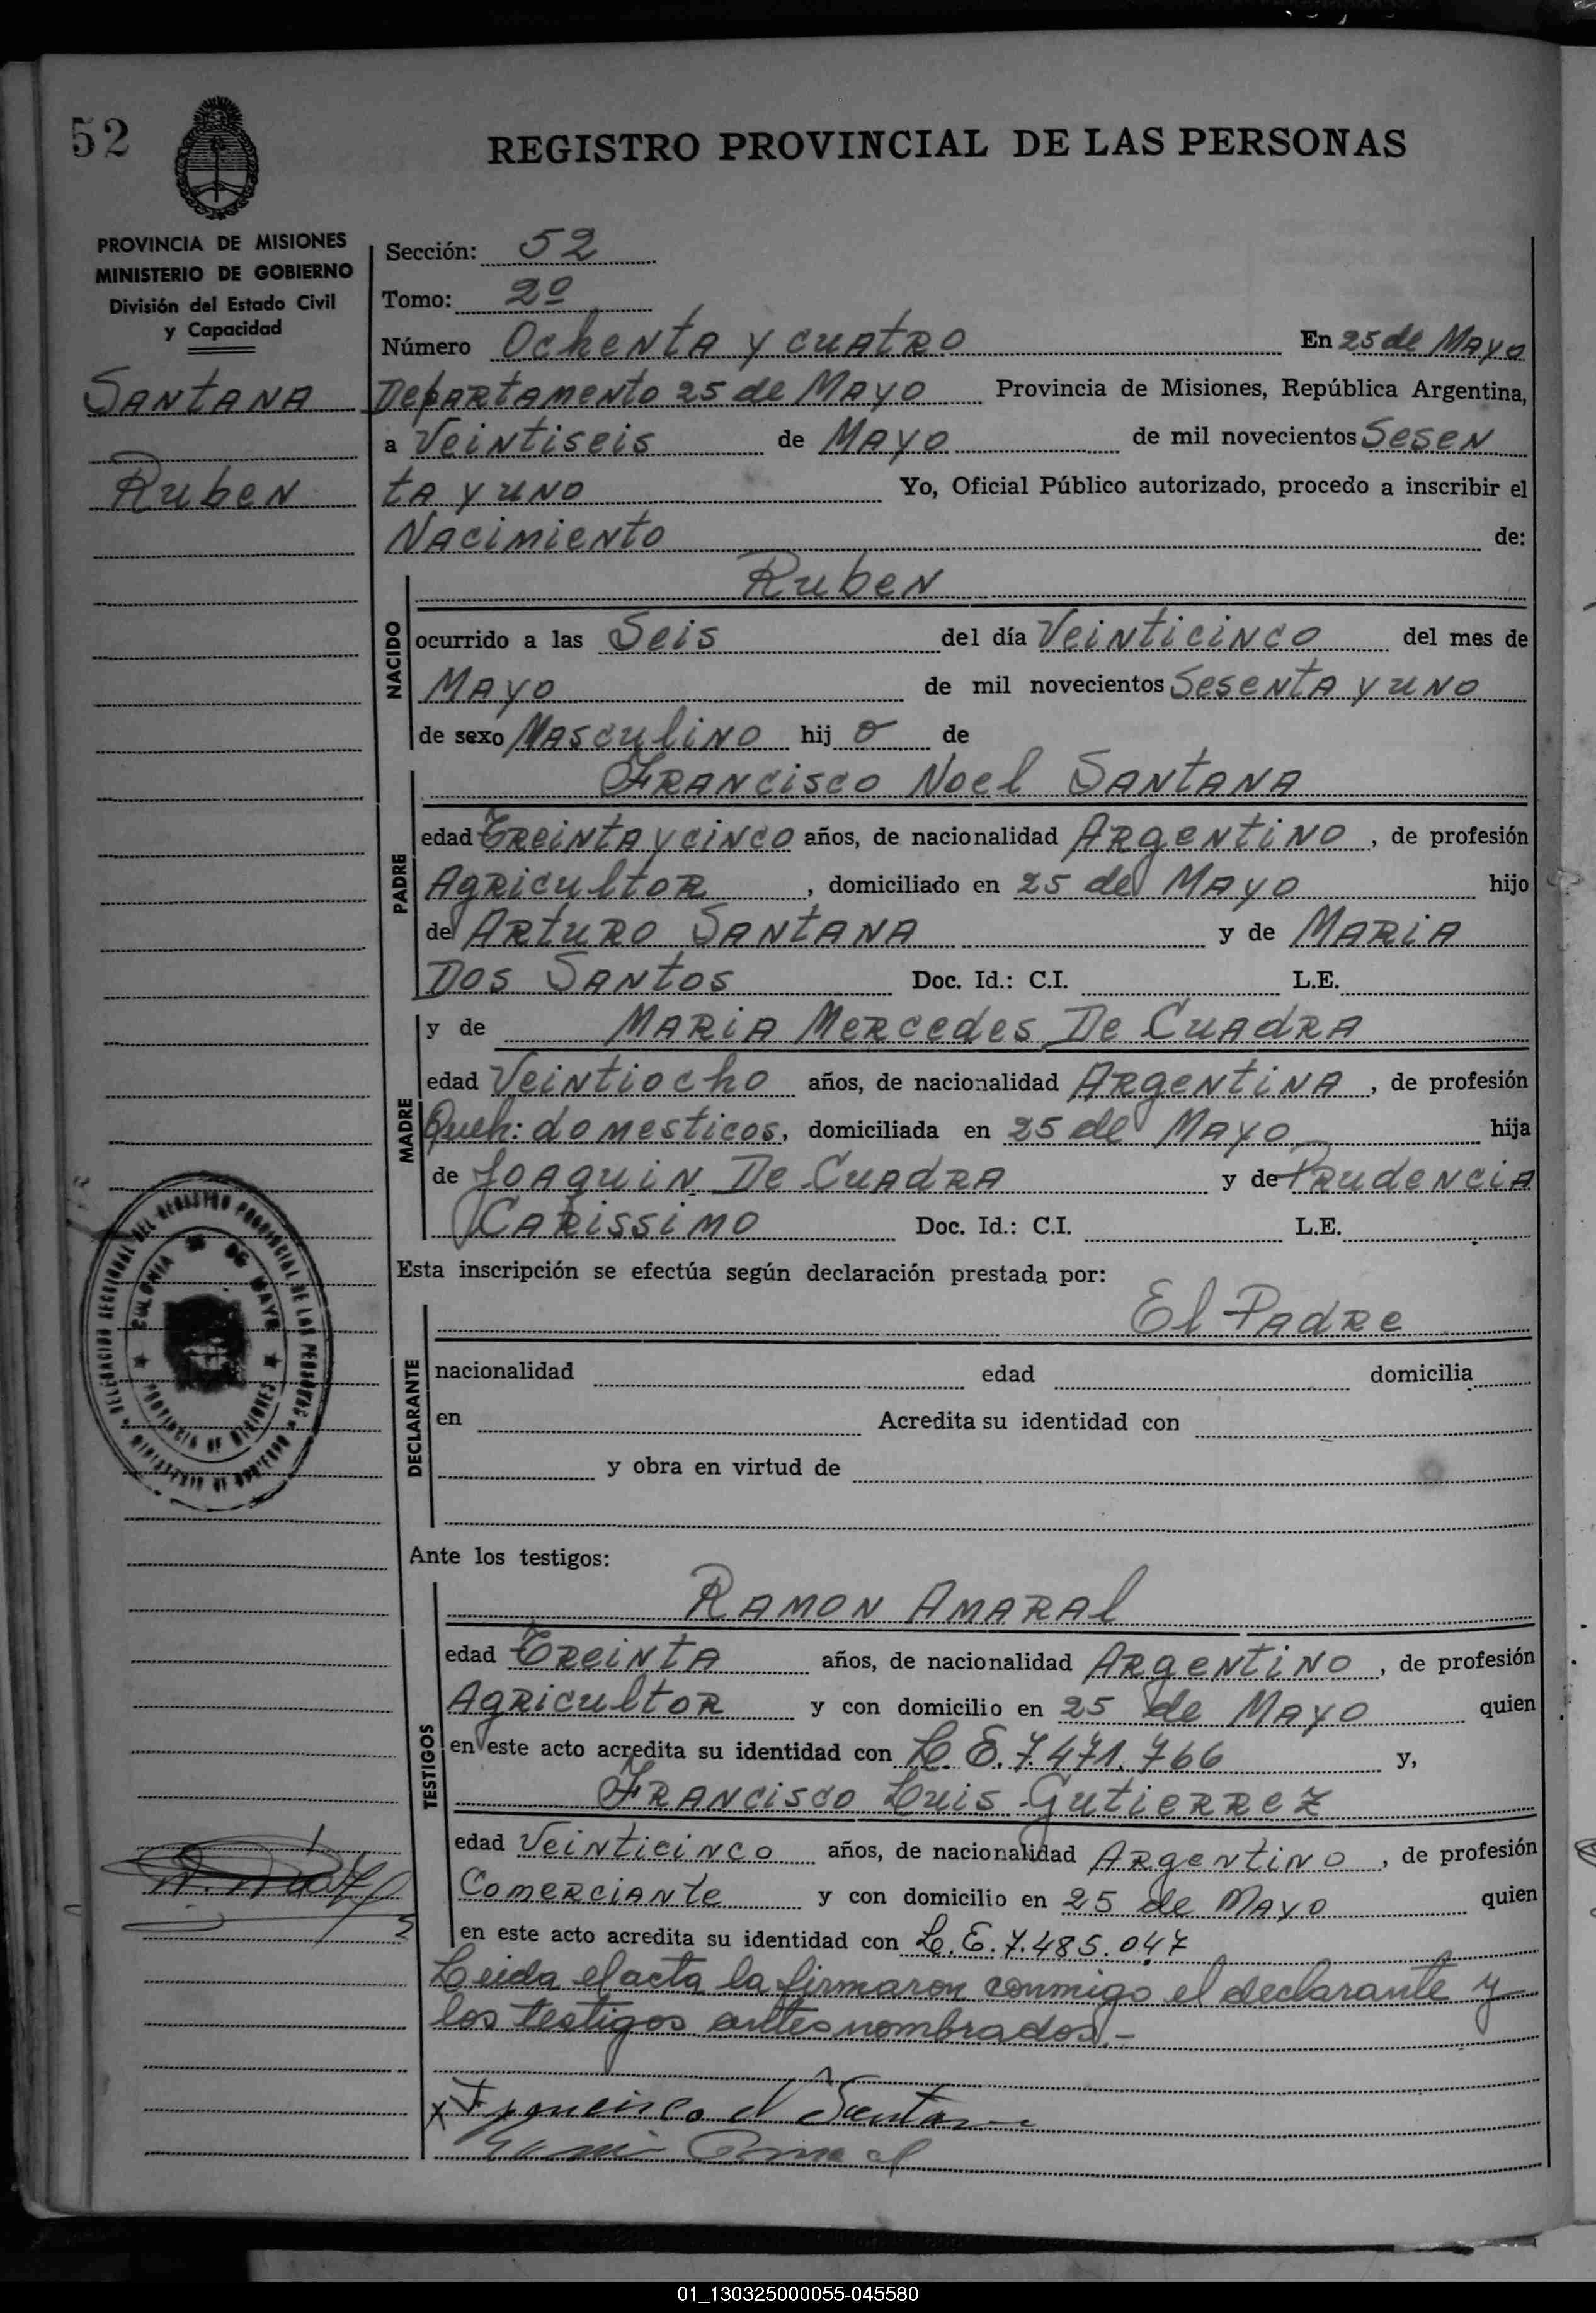 52
REGISTRO PROVINCIAL DE LAS PERSONAS
PROVINCIA DE MISIONES
MINISTERIO DE GOBIERNO
División del Estado Civil
y Capacidad
Santana
Ruben
Sección: 52
Tomo: 2º
Número Ochenta y cuatro En 25 de Mayo
Departamento 25 de Mayo Provincia de Misiones, República Argentina,
a Veintiseis de Mayo de mil novecientos Sesen
ta y uno Yo, Oficial Público autorizado, procedo a inscribir el
Nacimiento de:
NACIDO
Ruben
ocurrido a las Seis del día Veinticinco del mes de
Mayo de mil novecientos Sesenta y uno
de sexo Masculino hij o de
PADRE
Francisco Noel Santana
edad Treinta y cinco años, de nacionalidad Argentino, de profesión
Agricultor, domiciliado en 25 de Mayo hijo
de Arturo Santana y de Maria
Dos Santos Doc. Id.: C.I. L.E.
MADRE
y de Maria Mercedes De Cuadra
edad Veintiocho años, de nacionalidad Argentina, de profesión
Queh: domesticos, domiciliada en 25 de Mayo hija
de Joaquin De Cuadra y de Prudencia
Carissimo Doc. Id.: C.I. L.E.
Esta inscripción se efectúa según declaración prestada por:
DECLARANTE
El Padre
nacionalidad edad domicilia
en Acredita su identidad con
y obra en virtud de
Ante los testigos:
TESTIGOS
Ramon Amaral
edad Treinta años, de nacionalidad Argentino, de profesión
Agricultor y con domicilio en 25 de Mayo quien
en este acto acredita su identidad con L.E. 7.471.766 y,
Francisco Luis Gutierrez
edad Veinticinco años, de nacionalidad Argentino, de profesión
Comerciante y con domicilio en 25 de Mayo quien
en este acto acredita su identidad con L.E. 7.485.047
Leida el acta la firmaron conmigo el declarante y
los testigos antes nombrados.-
x Francisco N Santana
COLONIA 25 DE MAYO
PROVINCIA DE MISIONES
01_130325000055-045580